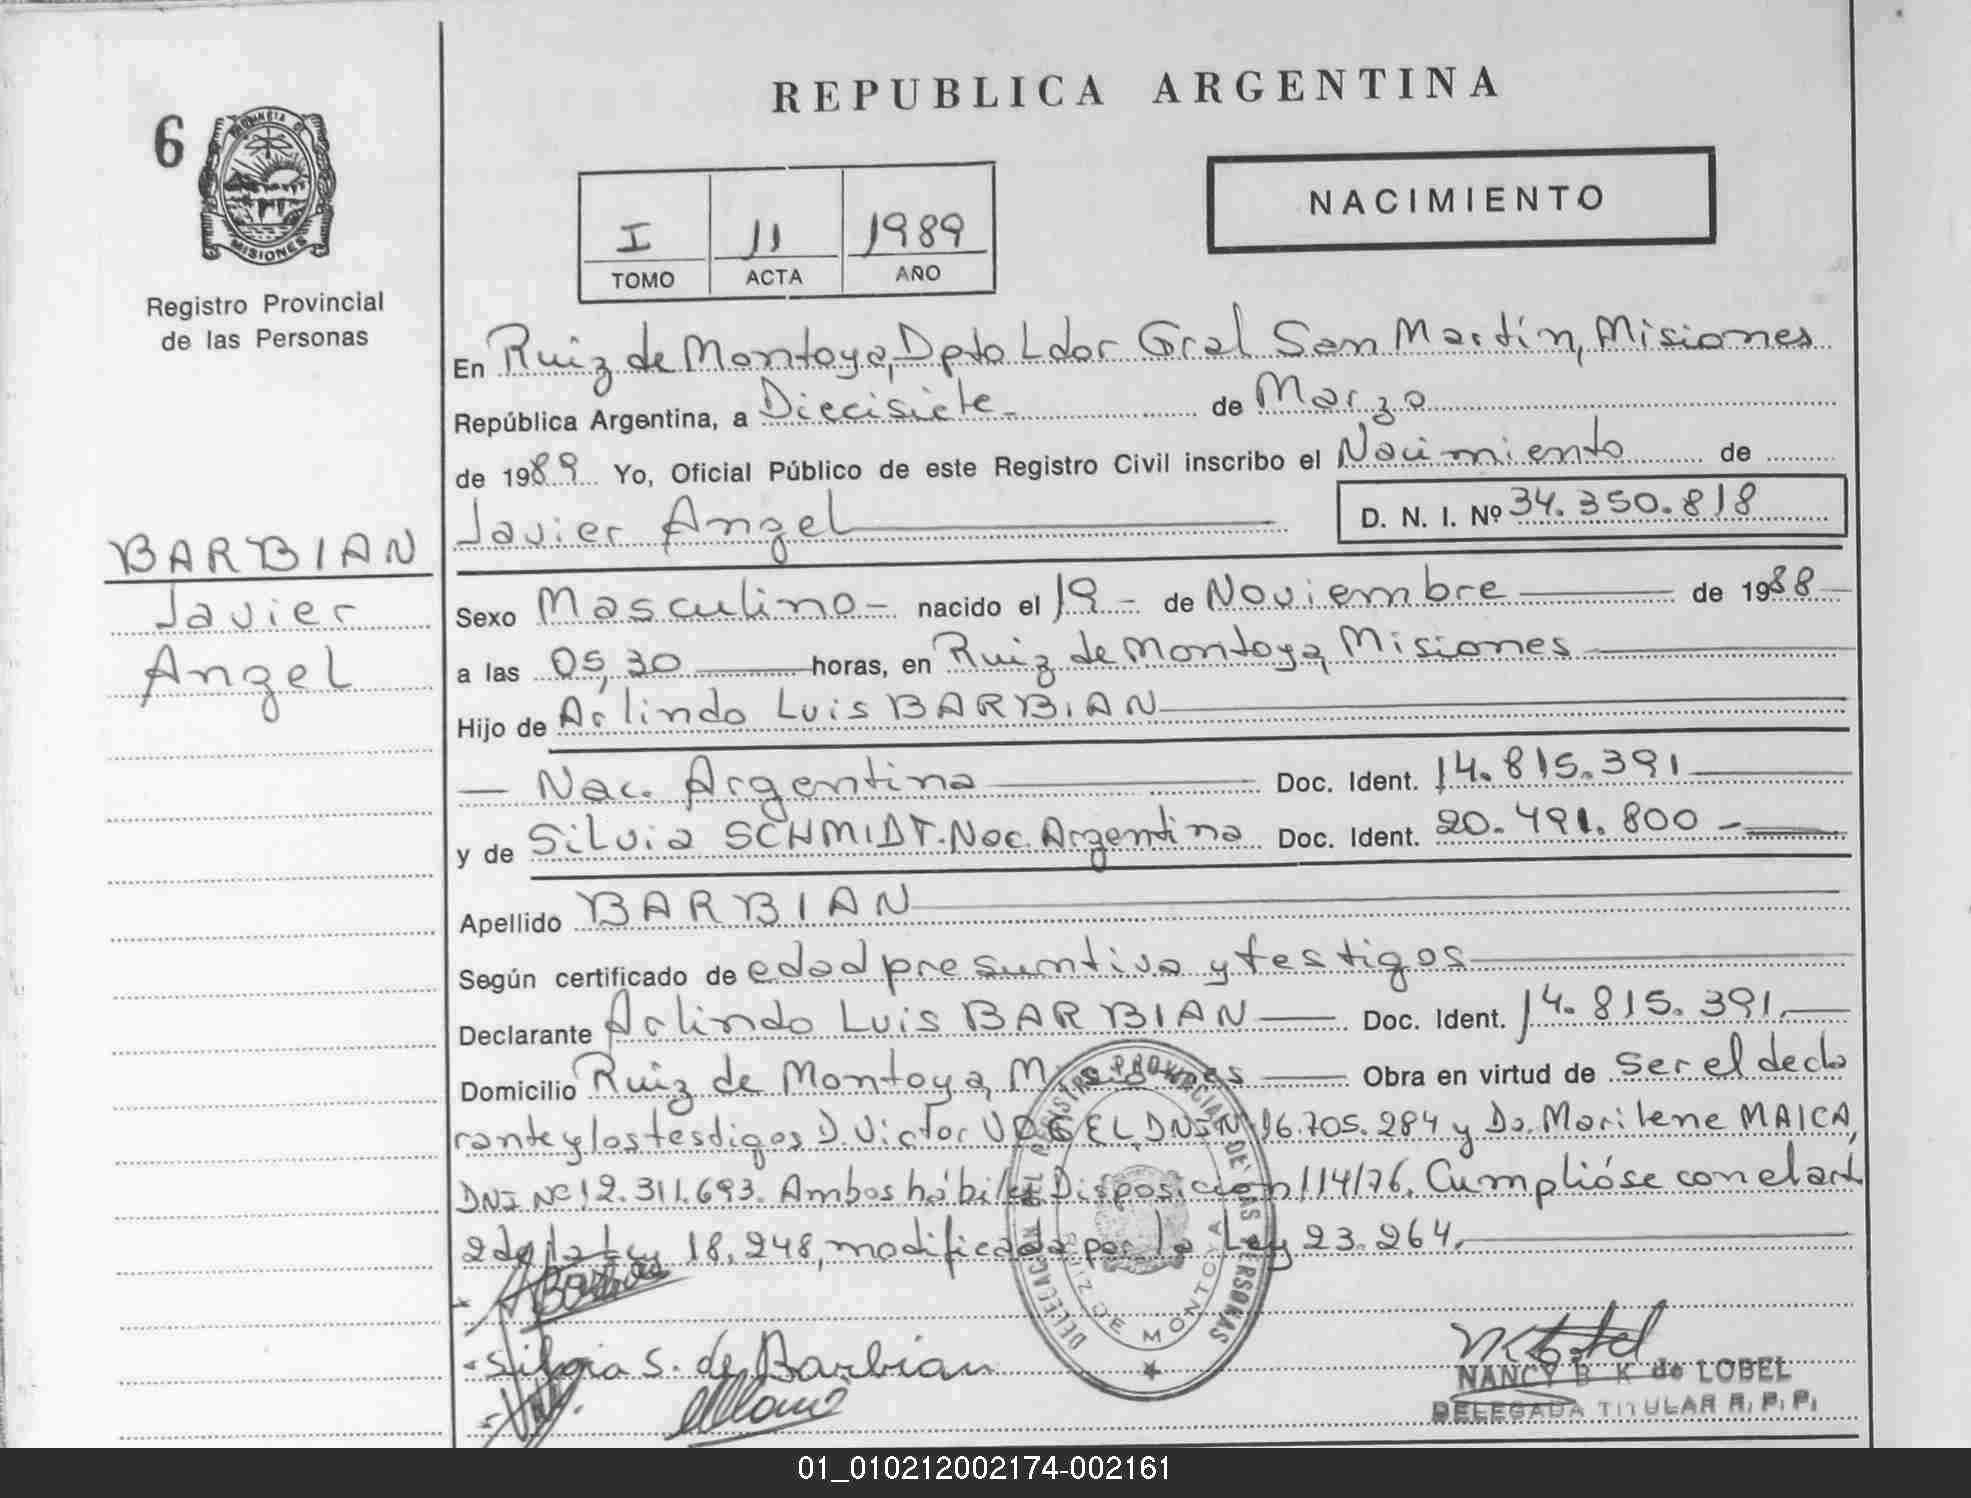 REPUBLICA ARGENTINA
6
PROVINCIA DE
MISIONES
Registro Provincial
de las Personas
NACIMIENTO
I 11 1989
TOMO ACTA AÑO
En Ruiz de Montoya, Dpto Ldor Gral San Martín, Misiones
República Argentina, a Diecisiete - de Marzo
de 1989 Yo, Oficial Público de este Registro Civil inscribo el Nacimiento de
Javier Angel D. N. I. Nº 34.350.818
BARBIAN
Javier
Angel
Sexo Masculino - nacido el 19 - de Noviembre de 1988
a las 05,30 horas, en Ruiz de Montoya, Misiones
Hijo de Arlindo Luis BARBIAN
Nac. Argentina Doc. Ident. 14.815.391
y de Silvia SCHMIDT. Nac. Argentina Doc. Ident. 20.491.800 -
Apellido BARBIAN
Según certificado de edad presuntiva y testigos
Declarante Arlindo Luis BARBIAN Doc. Ident. 14.815.391.
Domicilio Ruiz de Montoya, Misiones Obra en virtud de ser el decla
rante y los testigos D. Victor VOGEL, DNI Nº 16.705.284 y Da. Marilene MAICA,
DNI Nº 12.311.693. Ambos hábiles Disposición 114/76. Cumplióse con el art
2 de la Ley 18.248, modificada por la Ley 23.264.
DELEGACION DEL REGISTRO PROVINCIAL DE LAS PERSONAS
RUIZ DE MONTOYA
Silvia S. de Barbian
NANCY B K de LOBEL
DELEGADA TITULAR R. P. P.
01_010212002174-002161